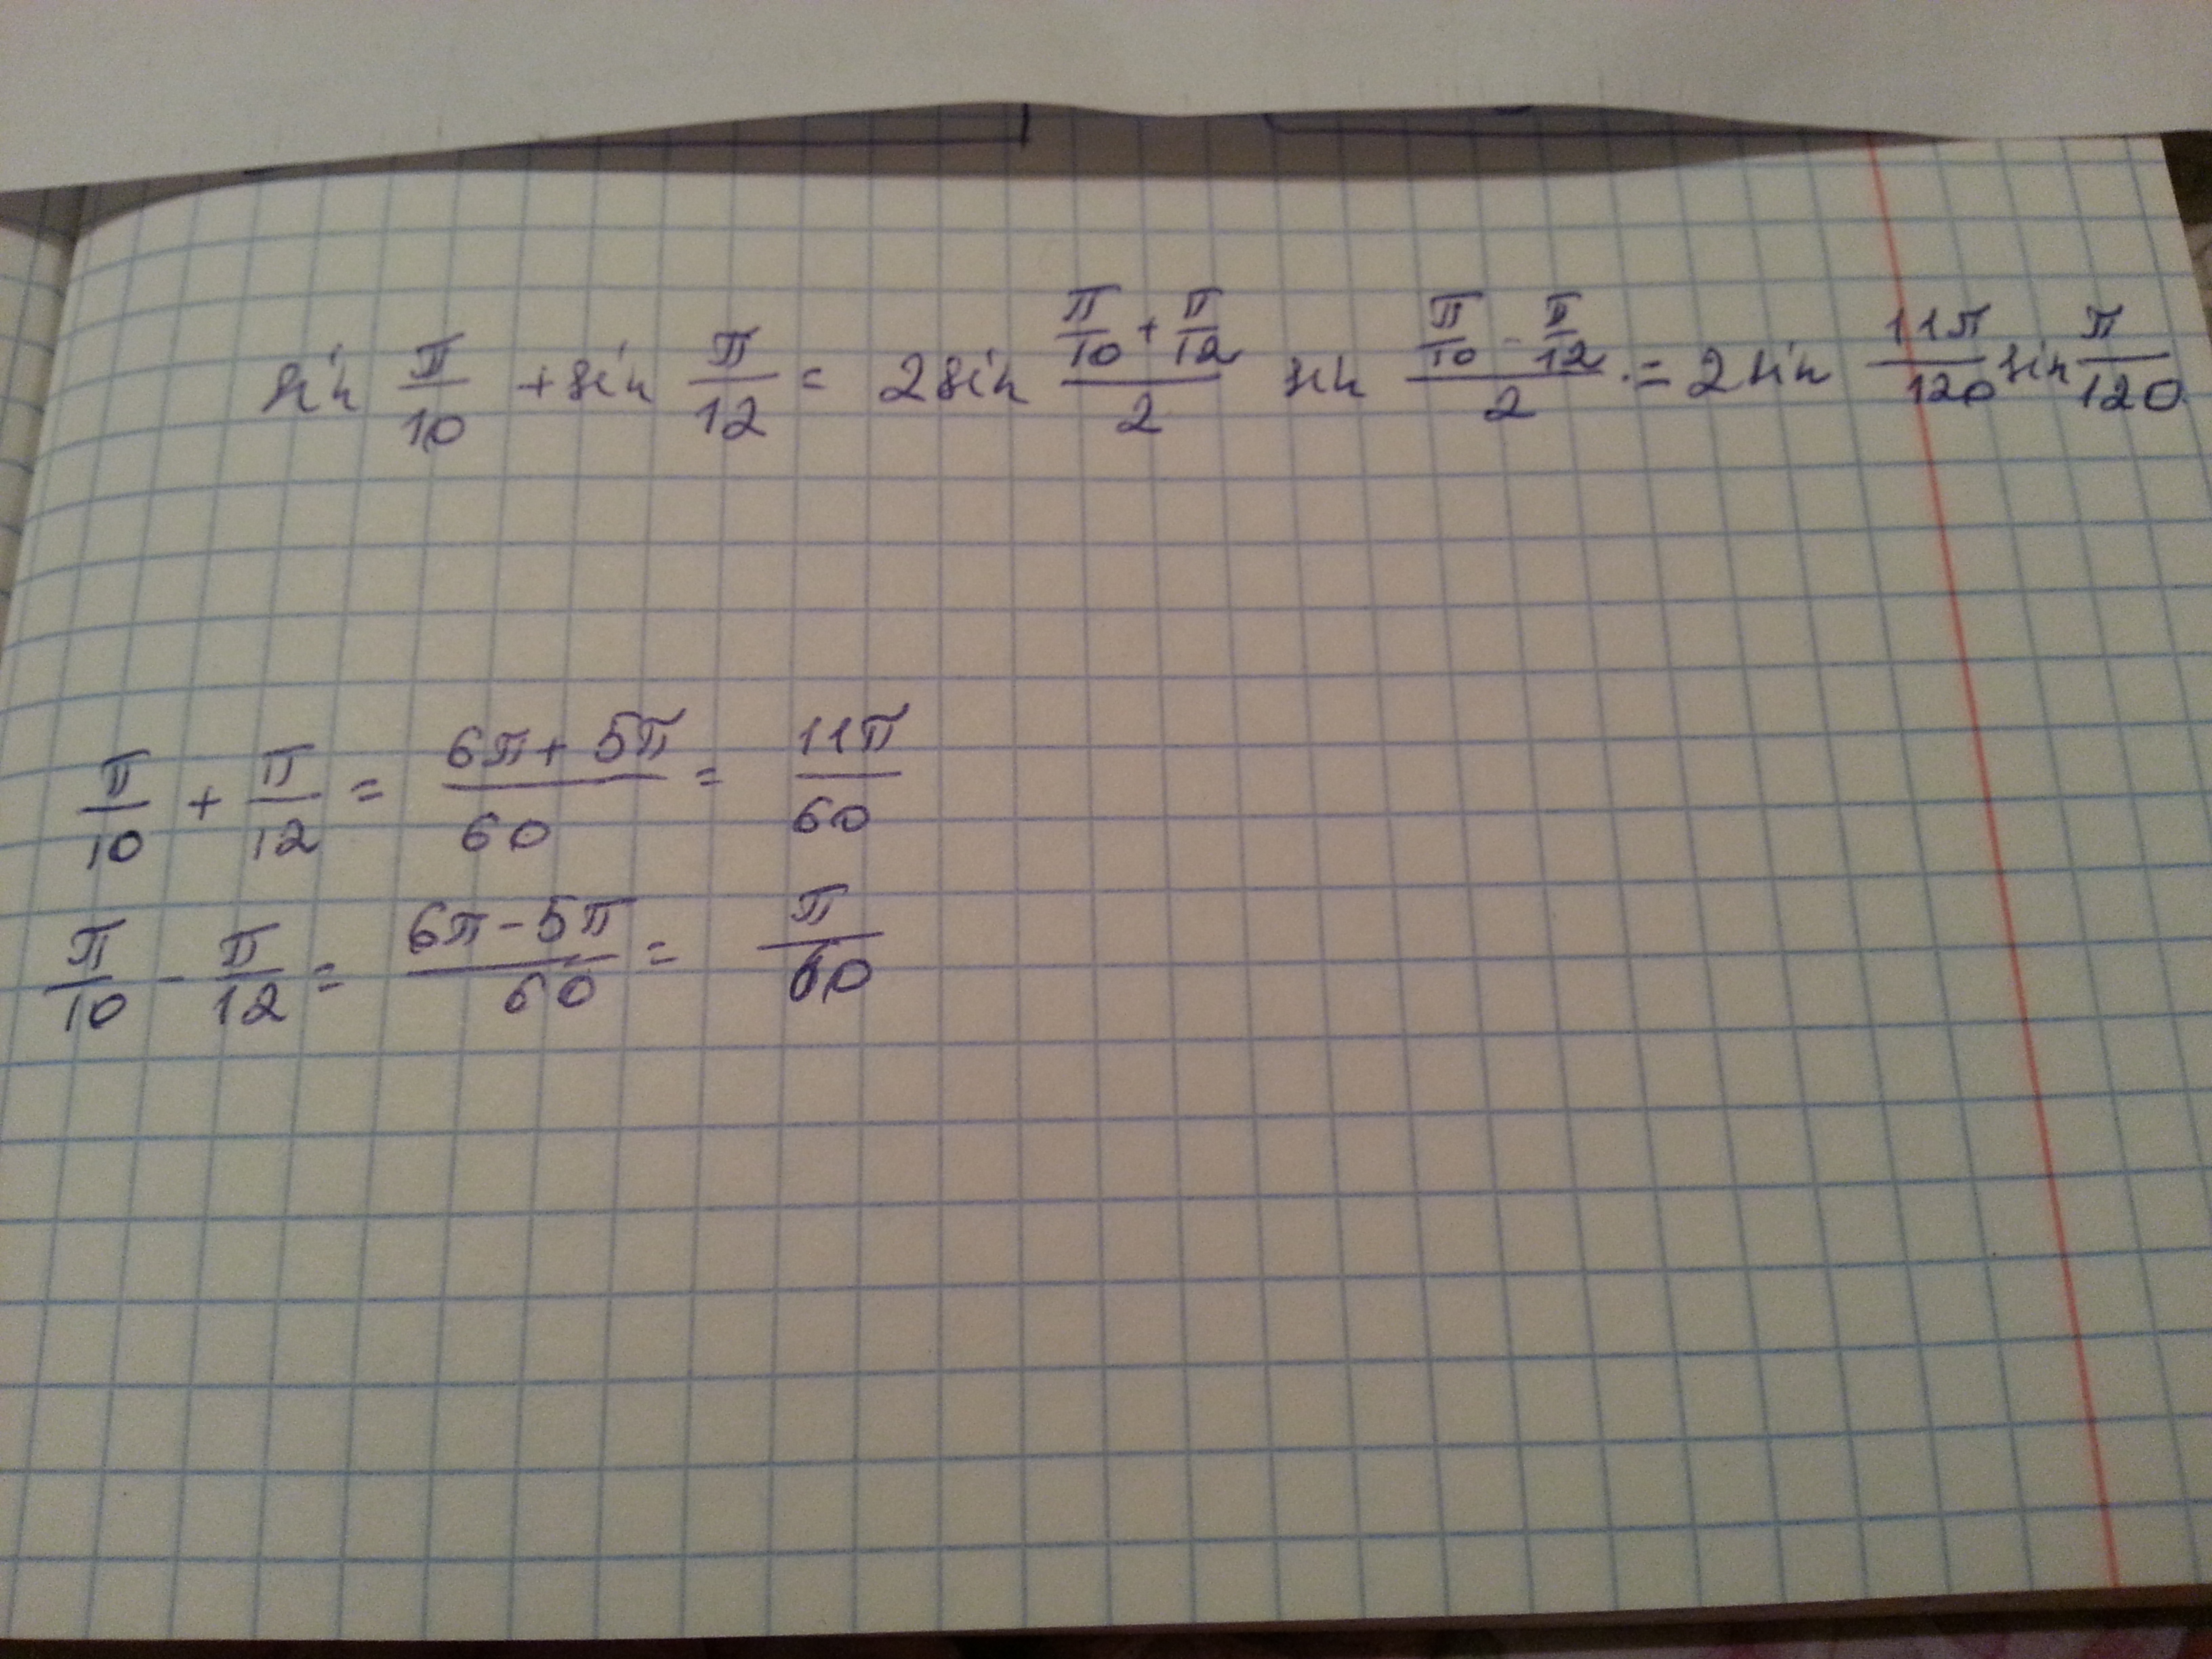 sin π/10 + sin π/12 = 2 sin (π/10 + π/12)/2 sin (π/10 - π/12)/2 = 2 sin 11π/120 sin π/120
π/10 + π/12 = (6π + 5π)/60 = 11π/60
π/10 - π/12 = (6π - 5π)/60 = π/60